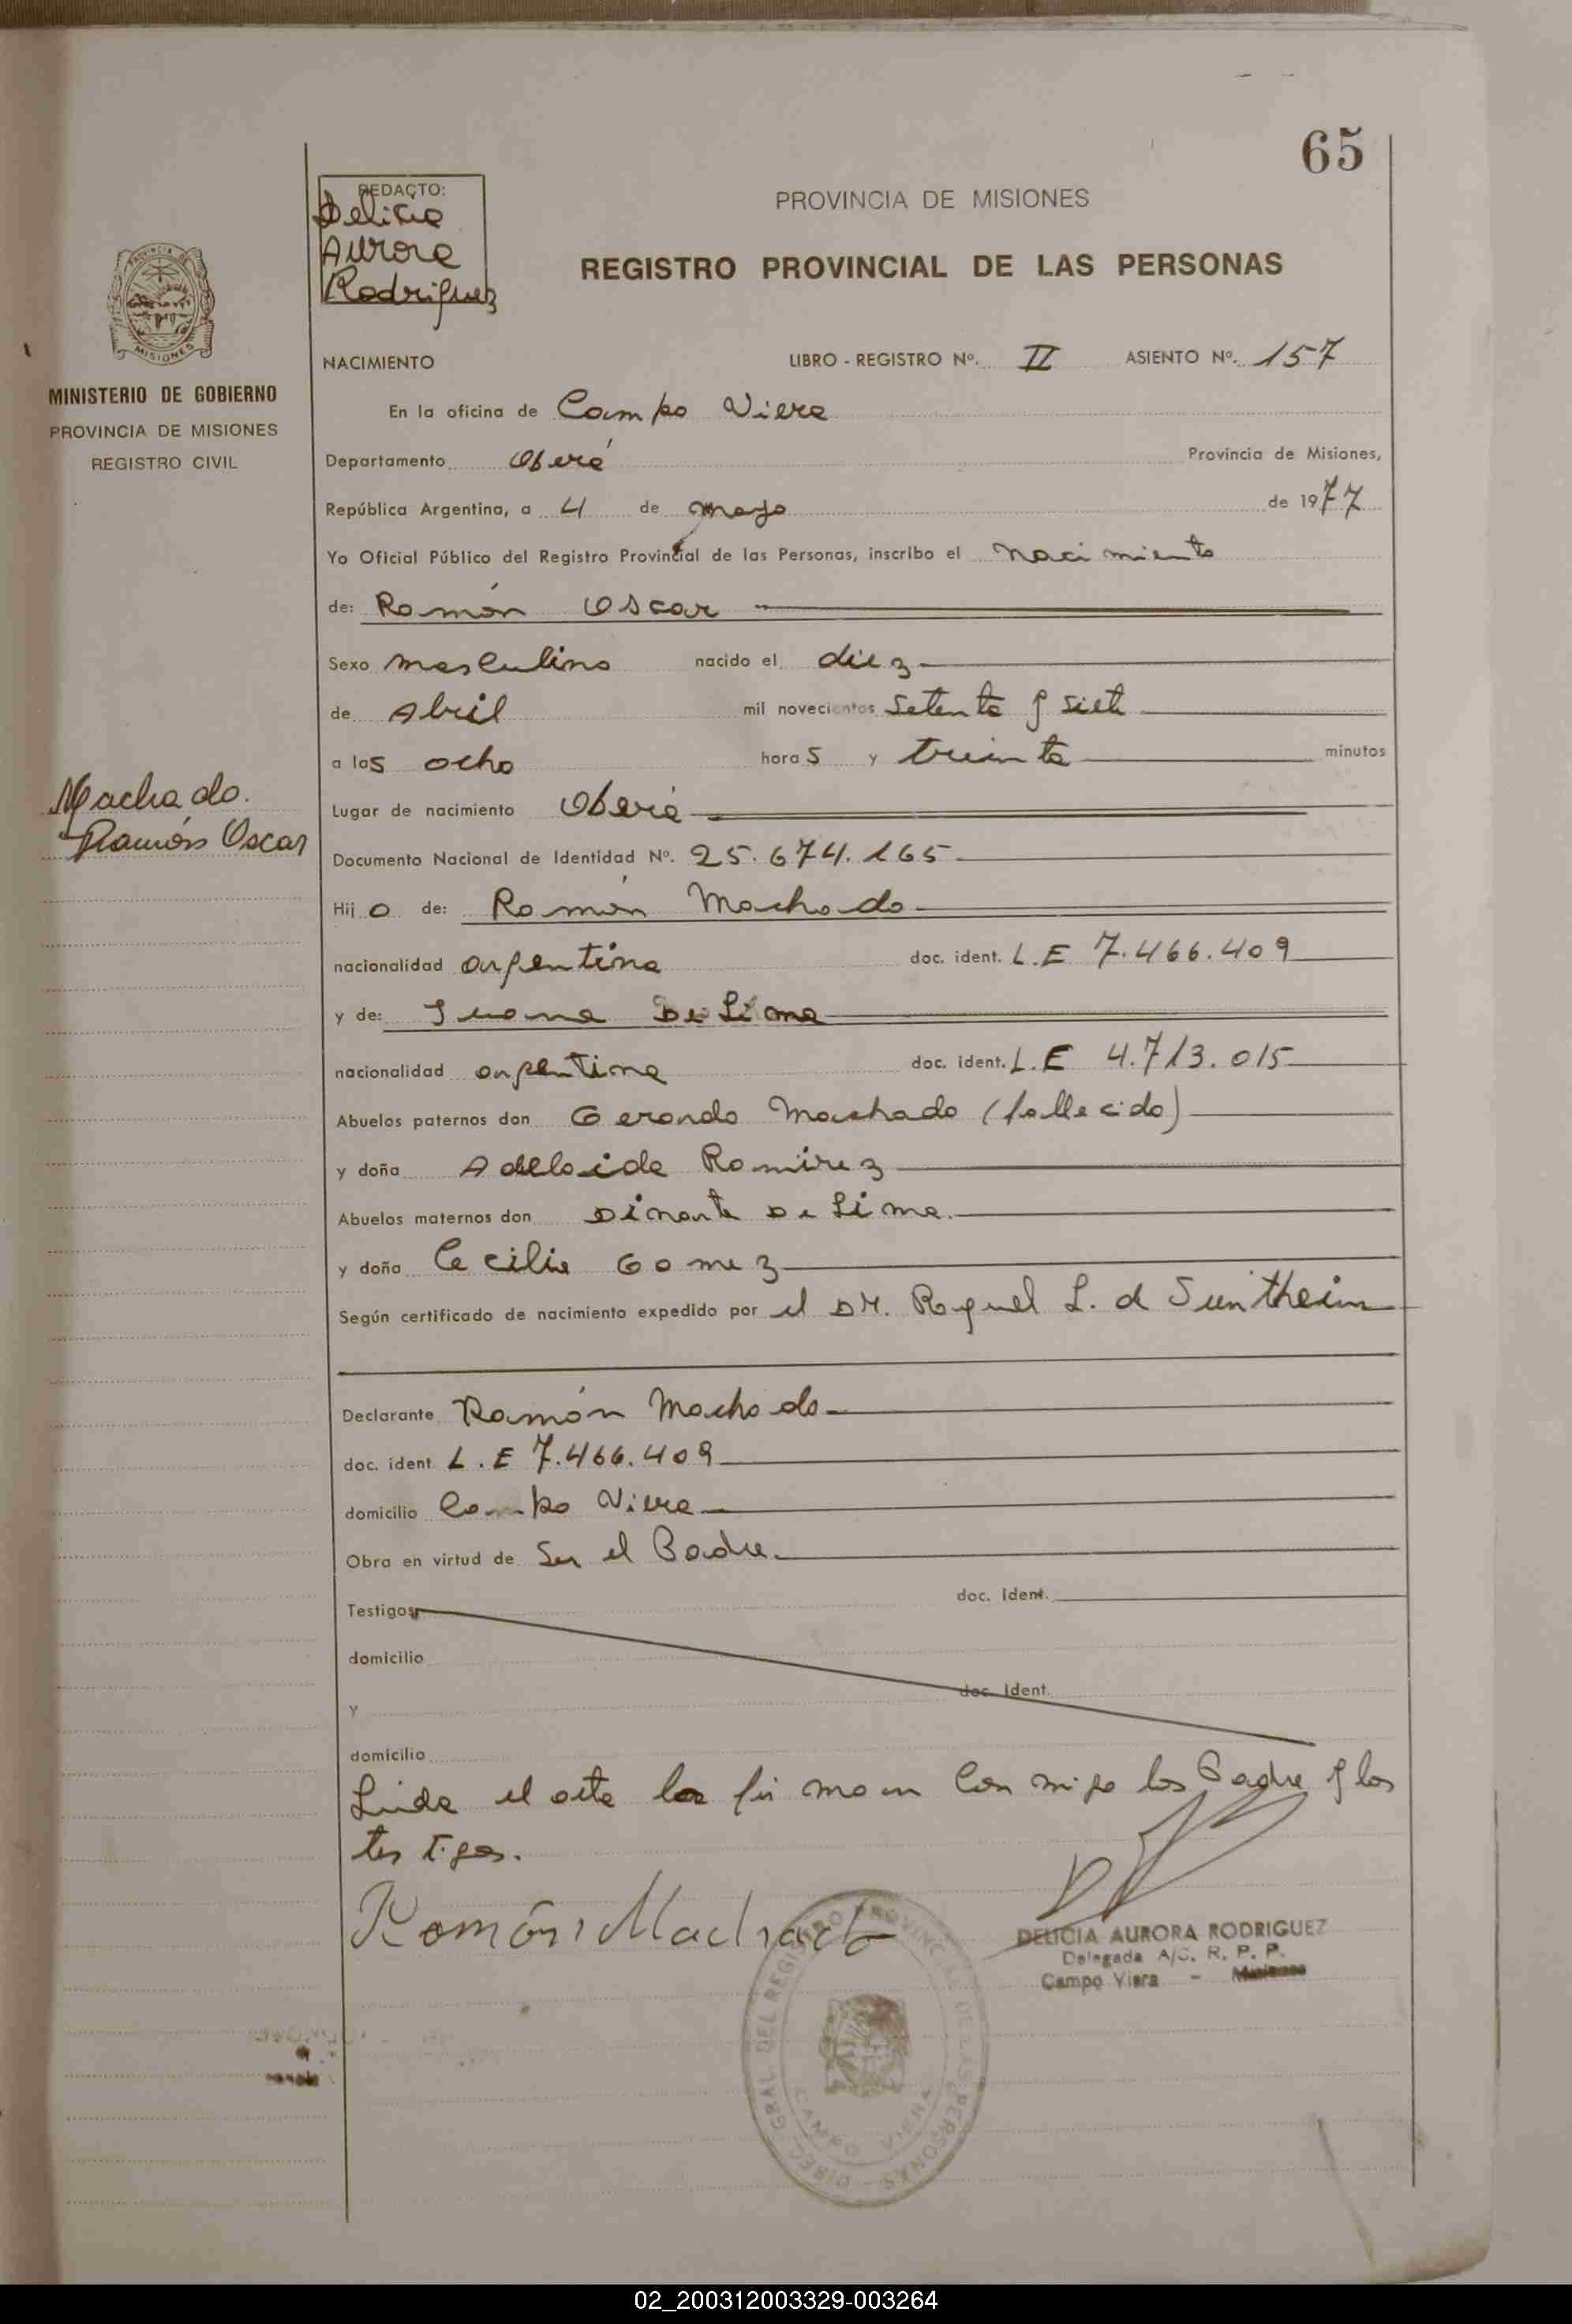 65
REDACTO:
Delicia
Aurora
Rodriguez
PROVINCIA DE MISIONES
REGISTRO PROVINCIAL DE LAS PERSONAS
MISIONES
MINISTERIO DE GOBIERNO
PROVINCIA DE MISIONES
REGISTRO CIVIL
NACIMIENTO LIBRO - REGISTRO Nº. II ASIENTO Nº. 157
En la oficina de Campo Viera
Departamento Oberá Provincia de Misiones,
República Argentina, a 4 de mayo de 1977
Yo Oficial Público del Registro Provincial de las Personas, inscribo el nacimiento
de: Ramón Oscar
Sexo masculino nacido el diez
de Abril mil novecientos setenta y siete
a las ocho horas y treinta minutos
Machado.
Ramón Oscar
Lugar de nacimiento Oberá
Documento Nacional de Identidad Nº. 25.674.165
Hijo de: Ramón Machado
nacionalidad argentina doc. ident. L.E 7.466.409
y de: Juana De Lima
nacionalidad argentina doc. ident. L.E 4.713.015
Abuelos paternos don Gerondo Machado (fallecido)
y doña Adelaida Ramirez
Abuelos maternos don Dinarte De Lima.
y doña Cecilia Gomez
Según certificado de nacimiento expedido por el DR. Raquel L. d Suntheim
Declarante Ramón Machado
doc. ident L.E 7.466.409
domicilio Campo Viera
Obra en virtud de Ser el Padre
Testigos doc. Ident.
domicilio
y doc. Ident.
domicilio
Leida el acta la firman conmigo los Padre y los
testigos.
Ramón Machado
DELICIA AURORA RODRIGUEZ
Delegada A/C. R. P. P.
Campo Viera - Misiones
DIREC. GRAL. DEL REGISTRO PROVINCIAL DE LAS PERSONAS
CAMPO VIERA
02_200312003329-003264